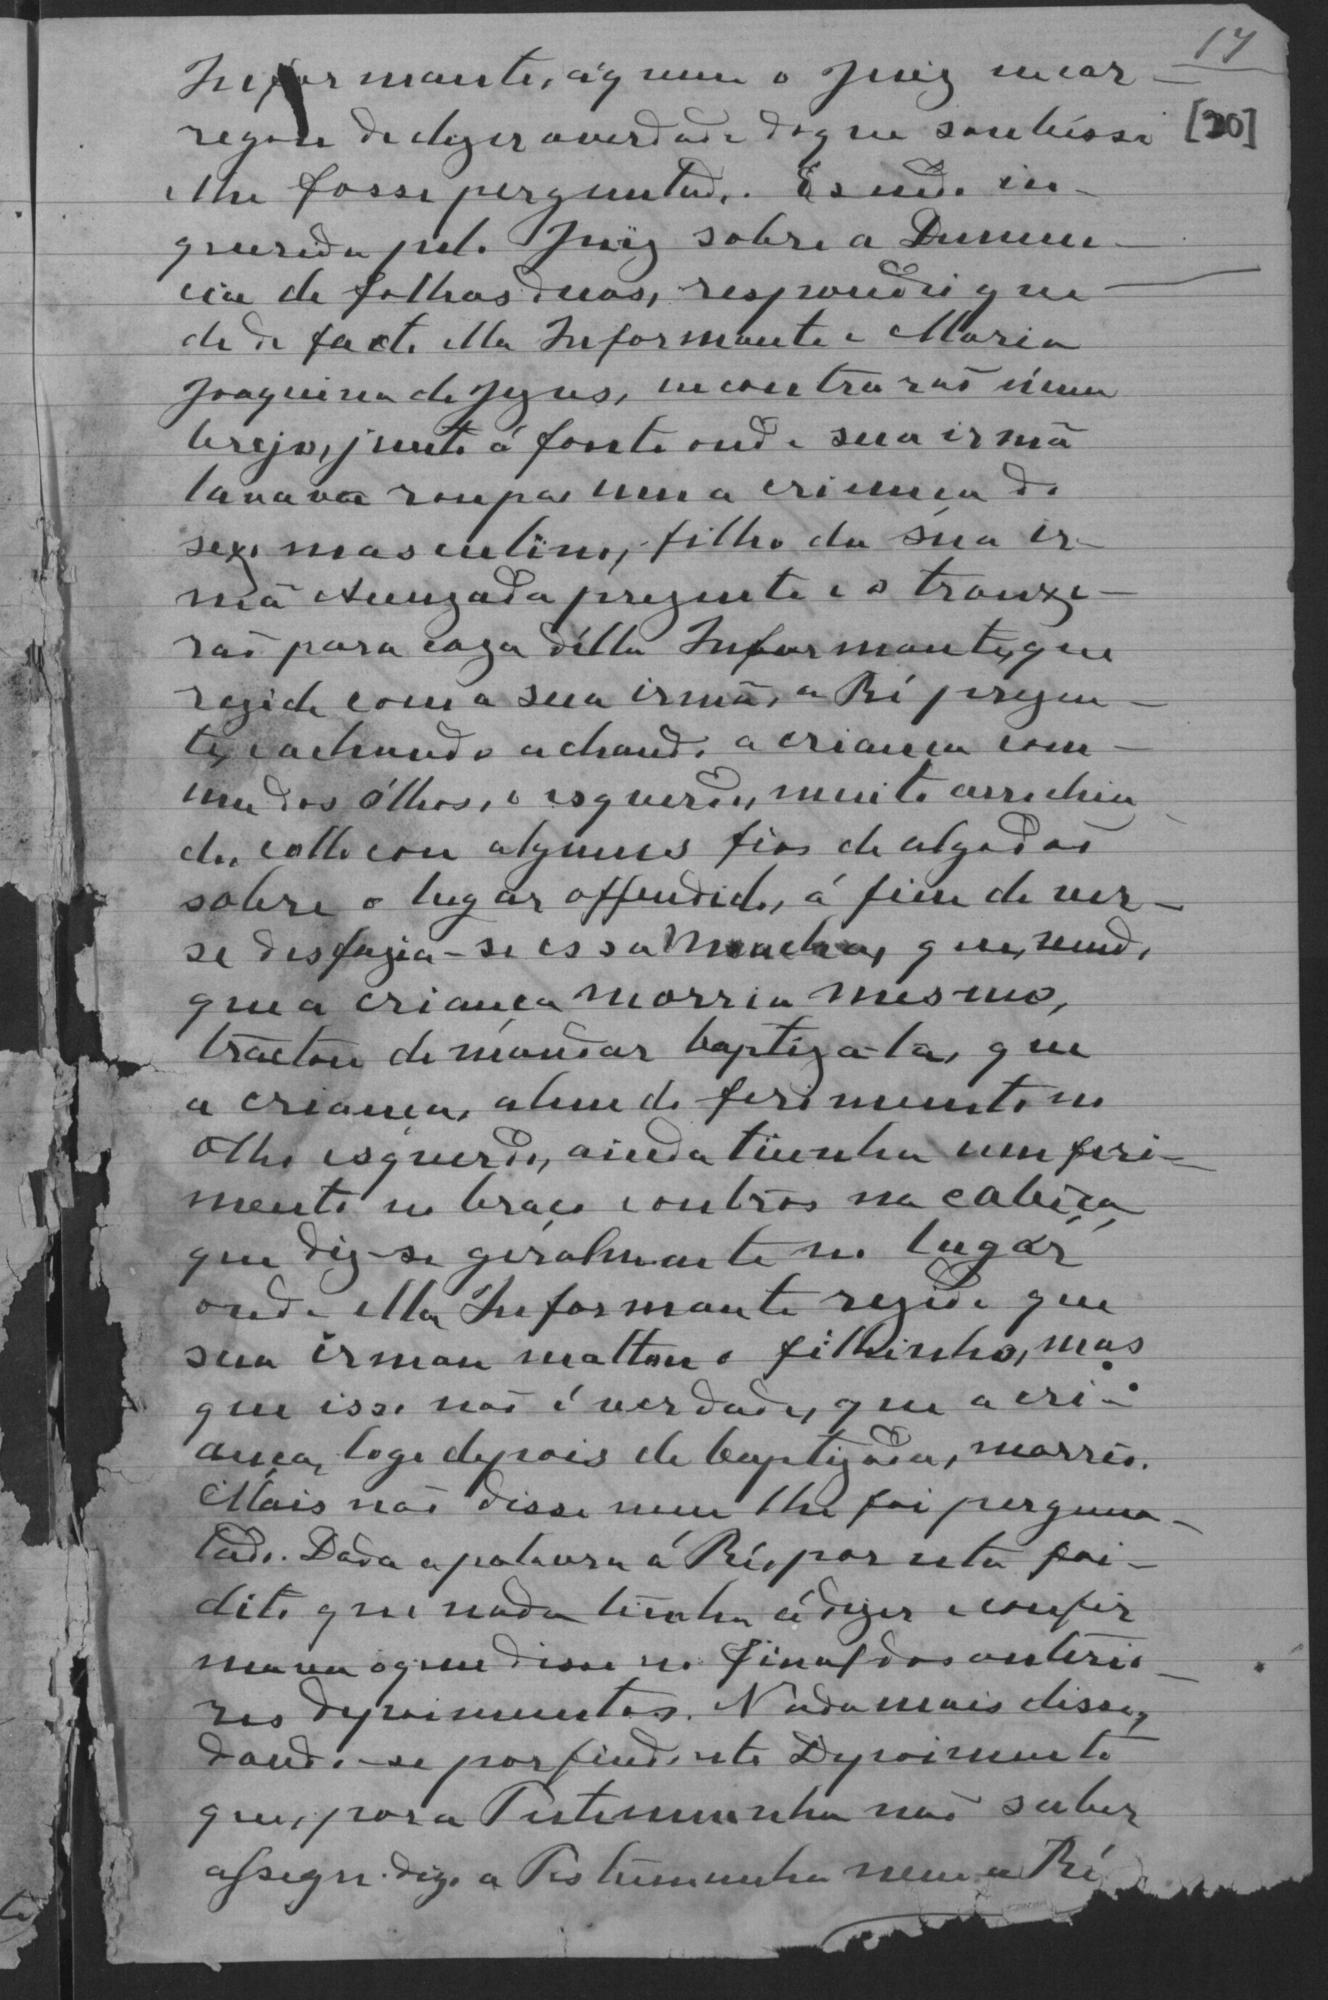 17
[20]
Informante, á quem o Juiz incar-
regou de dizer a verdade do que soubésse
e lhe fosse perguntado. E sendo in-
querida pelo Juiz sobre a Denun-
cia de folhas duas, respondeu que
de de facto ella Informante e Maria
Joaquina de Jezus, incontrarão n'um
brejo, junto á fonte onde sua irmã
lavava roupa, uma criança do
sexo masculino, filho da súa ir-
mã Accuzada prezente e o trouxe-
rão para caza délla Informante, que
rezide com a sua irmã, a Ré prezen-
te, e achando achando a criança com
um dos ólhos, o esquerdo, muito arrochia
do, collocou alguns fios de algodão
sobre o lugar offendido, á fim de ver
se desfazia-se essa mancha, que, vendo
que a criança morria mesmo,
tractou de mandar baptiza-la, que
a criança, alem do ferimento no
olho esquerdo, ainda tinha um feri-
mento no braço e outros na cabeça
que diz-se géralmente no lugár
onde ella Informante rezide que
sua irman mattou o filhinho, mas
que isso não é verdade, que a cri-
ança, logo depois de baptizada, morreo.
Mais não disse nem lhe foi pergun-
tado. Dada a palavra á Ré, por esta foi
dito que nada tinha á dizer e confir
mava o que disse no final dos anterio-
res depoimentos. Nada mais disse,
dando-se por findo este Depoimento
que, por a Testemunha não saber
assign. digo a Testemunha nem a Ré